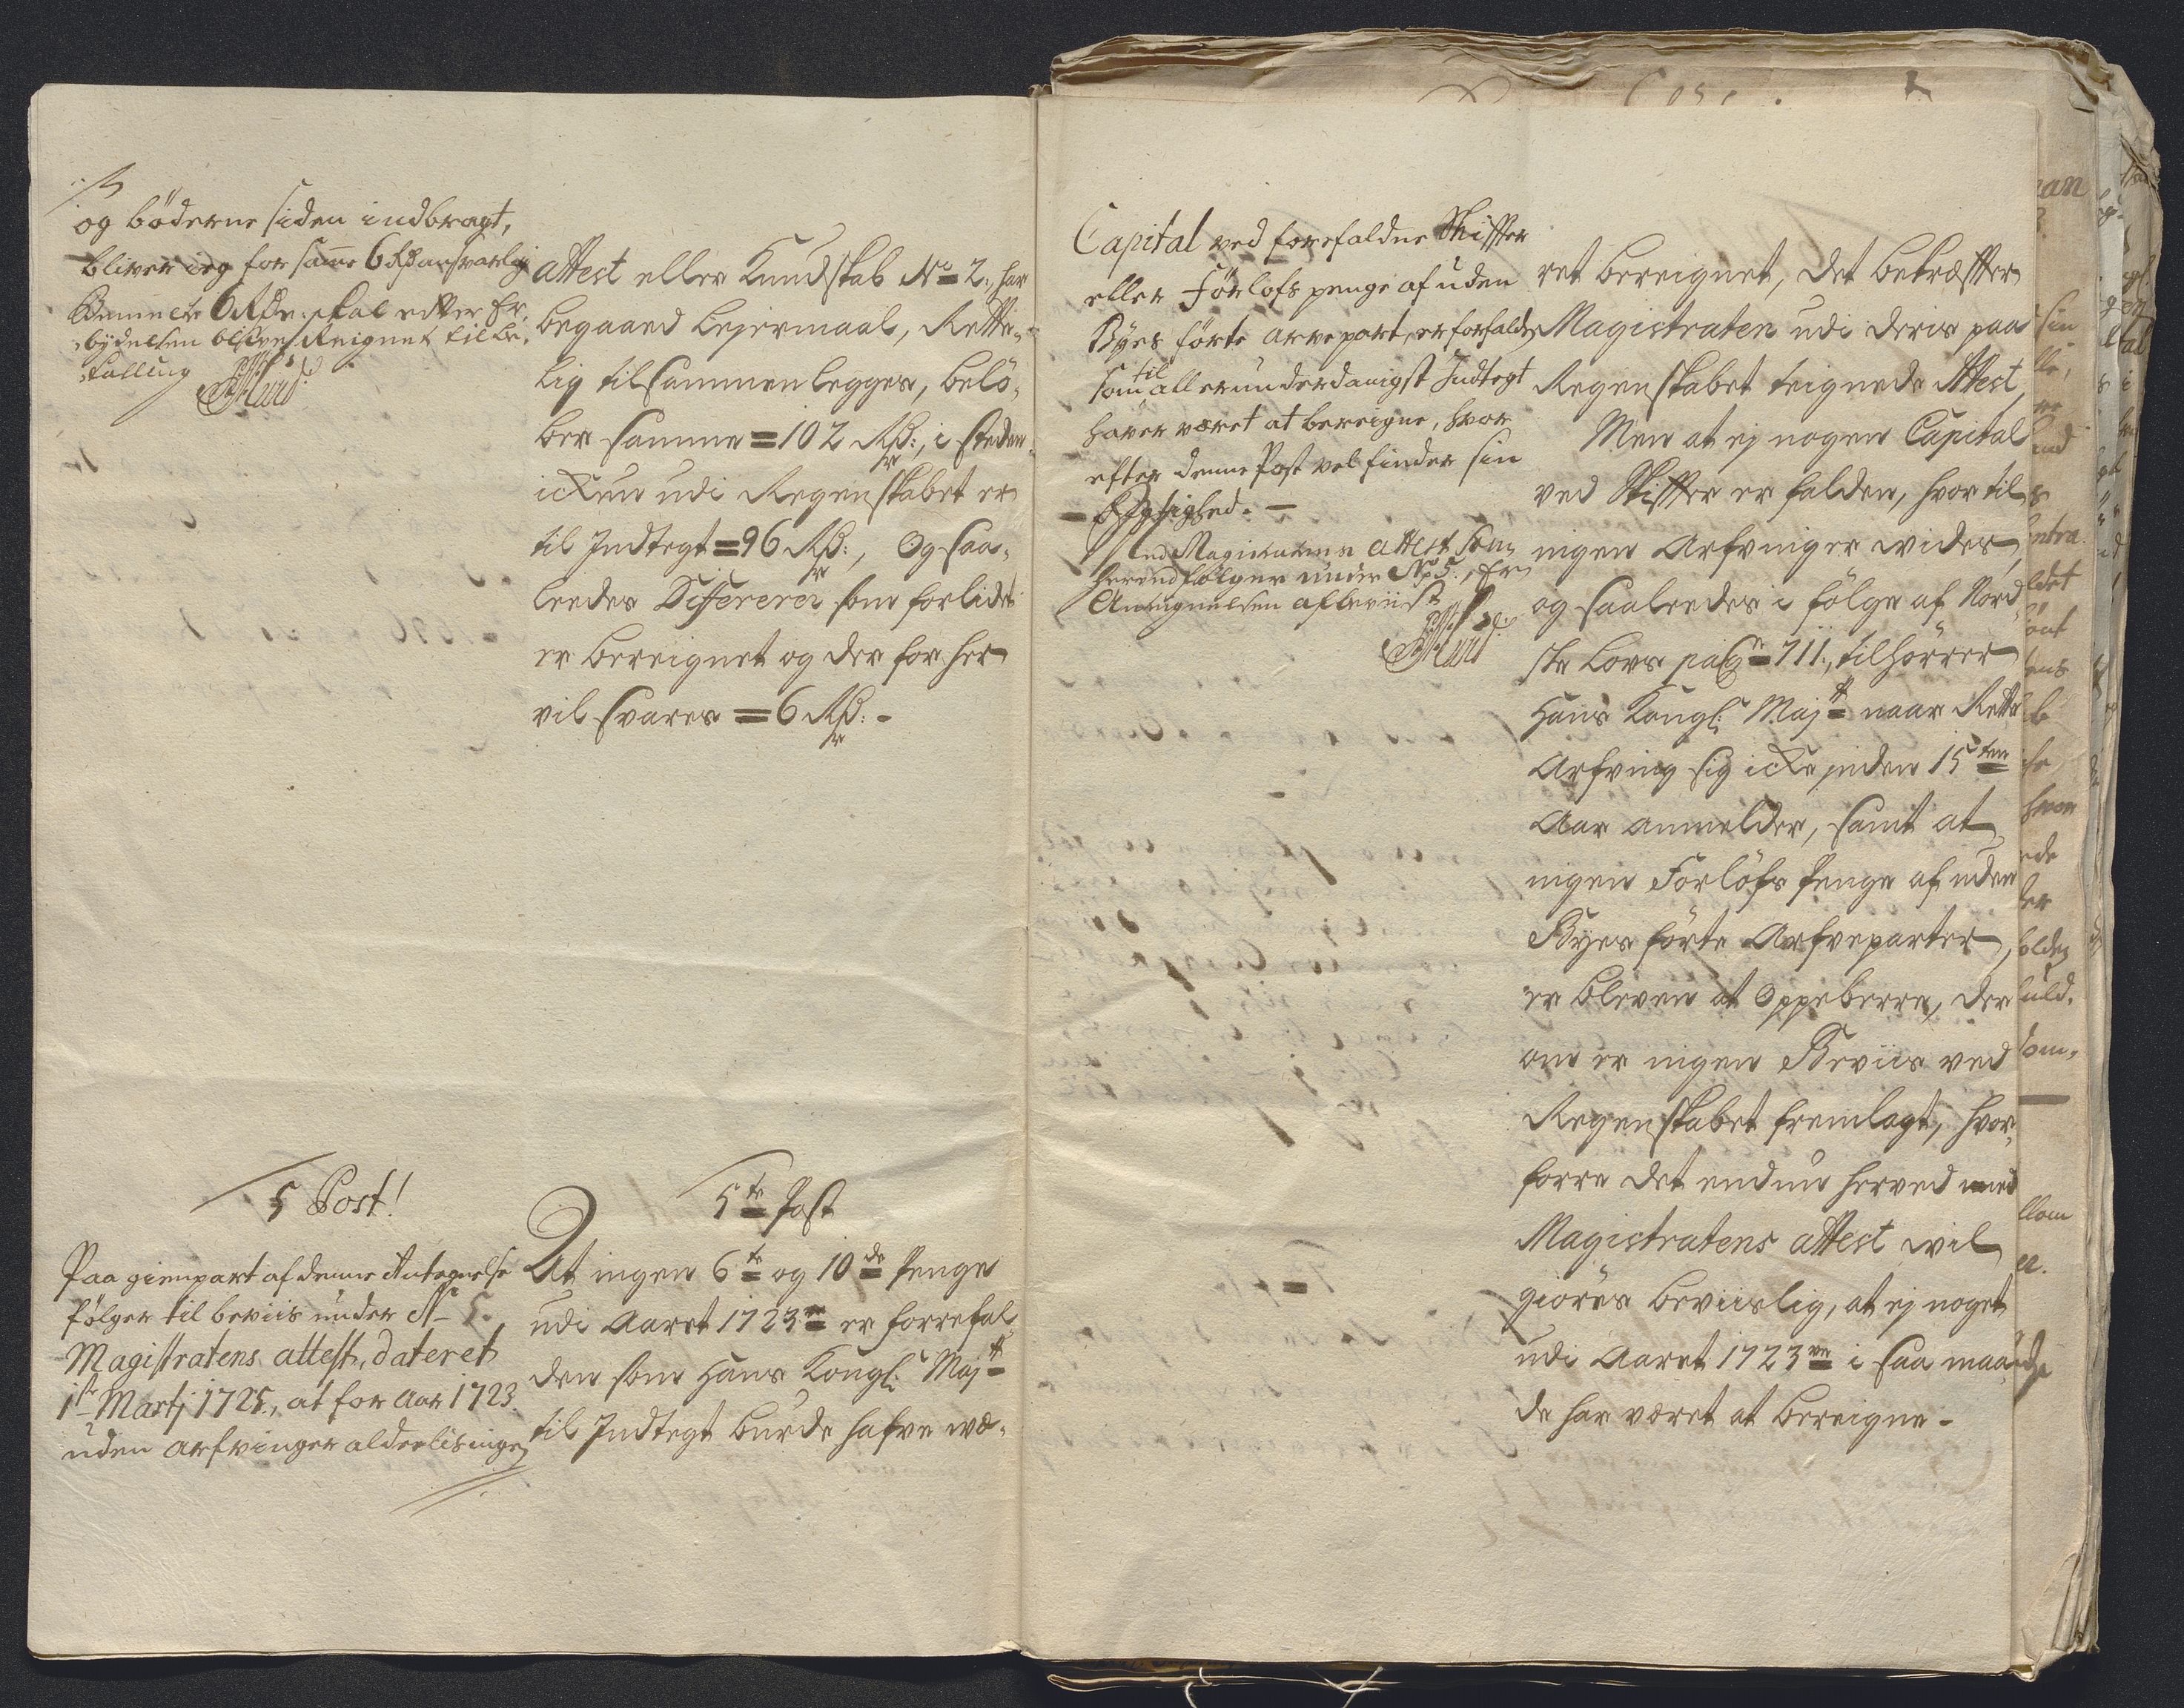 og böderne siden indbragt,
bliver ieg for samme 6 Rdr ansvarlig
Bemelte 6 Rdr. skal efter Er-
bydelsen blive Reignet til be-
talling
attest eller Kundskab No 2, har
begaaed Leyermaal, Rette-
lig tilsammen legges, belö-
ber samme = 102 Rdr:, i steden
ickun udi Regenskabet er
til Indtegt = 96 Rdr:, Og saa-
leedes Differerer som forlidet
er bereignet og der for her
vil svares = 6 Rdr: -
5 Post!
Paa gienpart af denne Antegnelse
fölger til beviis under No 5.
Magistratens attest, dateret
1st Martj 1725, at for Aar 1723
uden arfvinger aldeelis ingen
5te Post
At ingen 6te og 10de Penge
udi Aaret 1723ve er forrefal-
den som Hans Kongl: Maytt
til Indtegt burde hafve wæ-
Capital ved forefaldne Skiffter
eller Förlofs penge af uden
Byes förte arvepart, er forfalden
som til allerunderdanigst Indtegt
haver været at bereigne, hvor
efter denne Post vel finder sin
Rigtighed. -
Ved Magistratens attest som
herved fölger under No 5, er
Antegnelsen afbeviist
ret bereignet, det bekræffter
Magistraten udi deris paa
Regenskabet teignede Attest,
Men at ej nogen Capital
ved Skiffter er falden, hvor til
ingen Arfvinger wides,
og saaleedes i fölge af Nord-
ske Lovs pag = 711., tilhörrer
Hans Kongl: Maytt naar Rette
Arfving sig icke inden 15ten
Aar anmelder, samt at
ingen Forlöfs Penge af uden
Byes förte Arfveparter,
er bleven at Oppeberre, der
om er ingen Beviis ved
Regenskabet fremlagt, hvor-
forre det endnu herved med
Magistratens attest vil
giöres beviislig, at ej noget
udi Aaret 1723ve i saa maa-
de har været at bereigne -